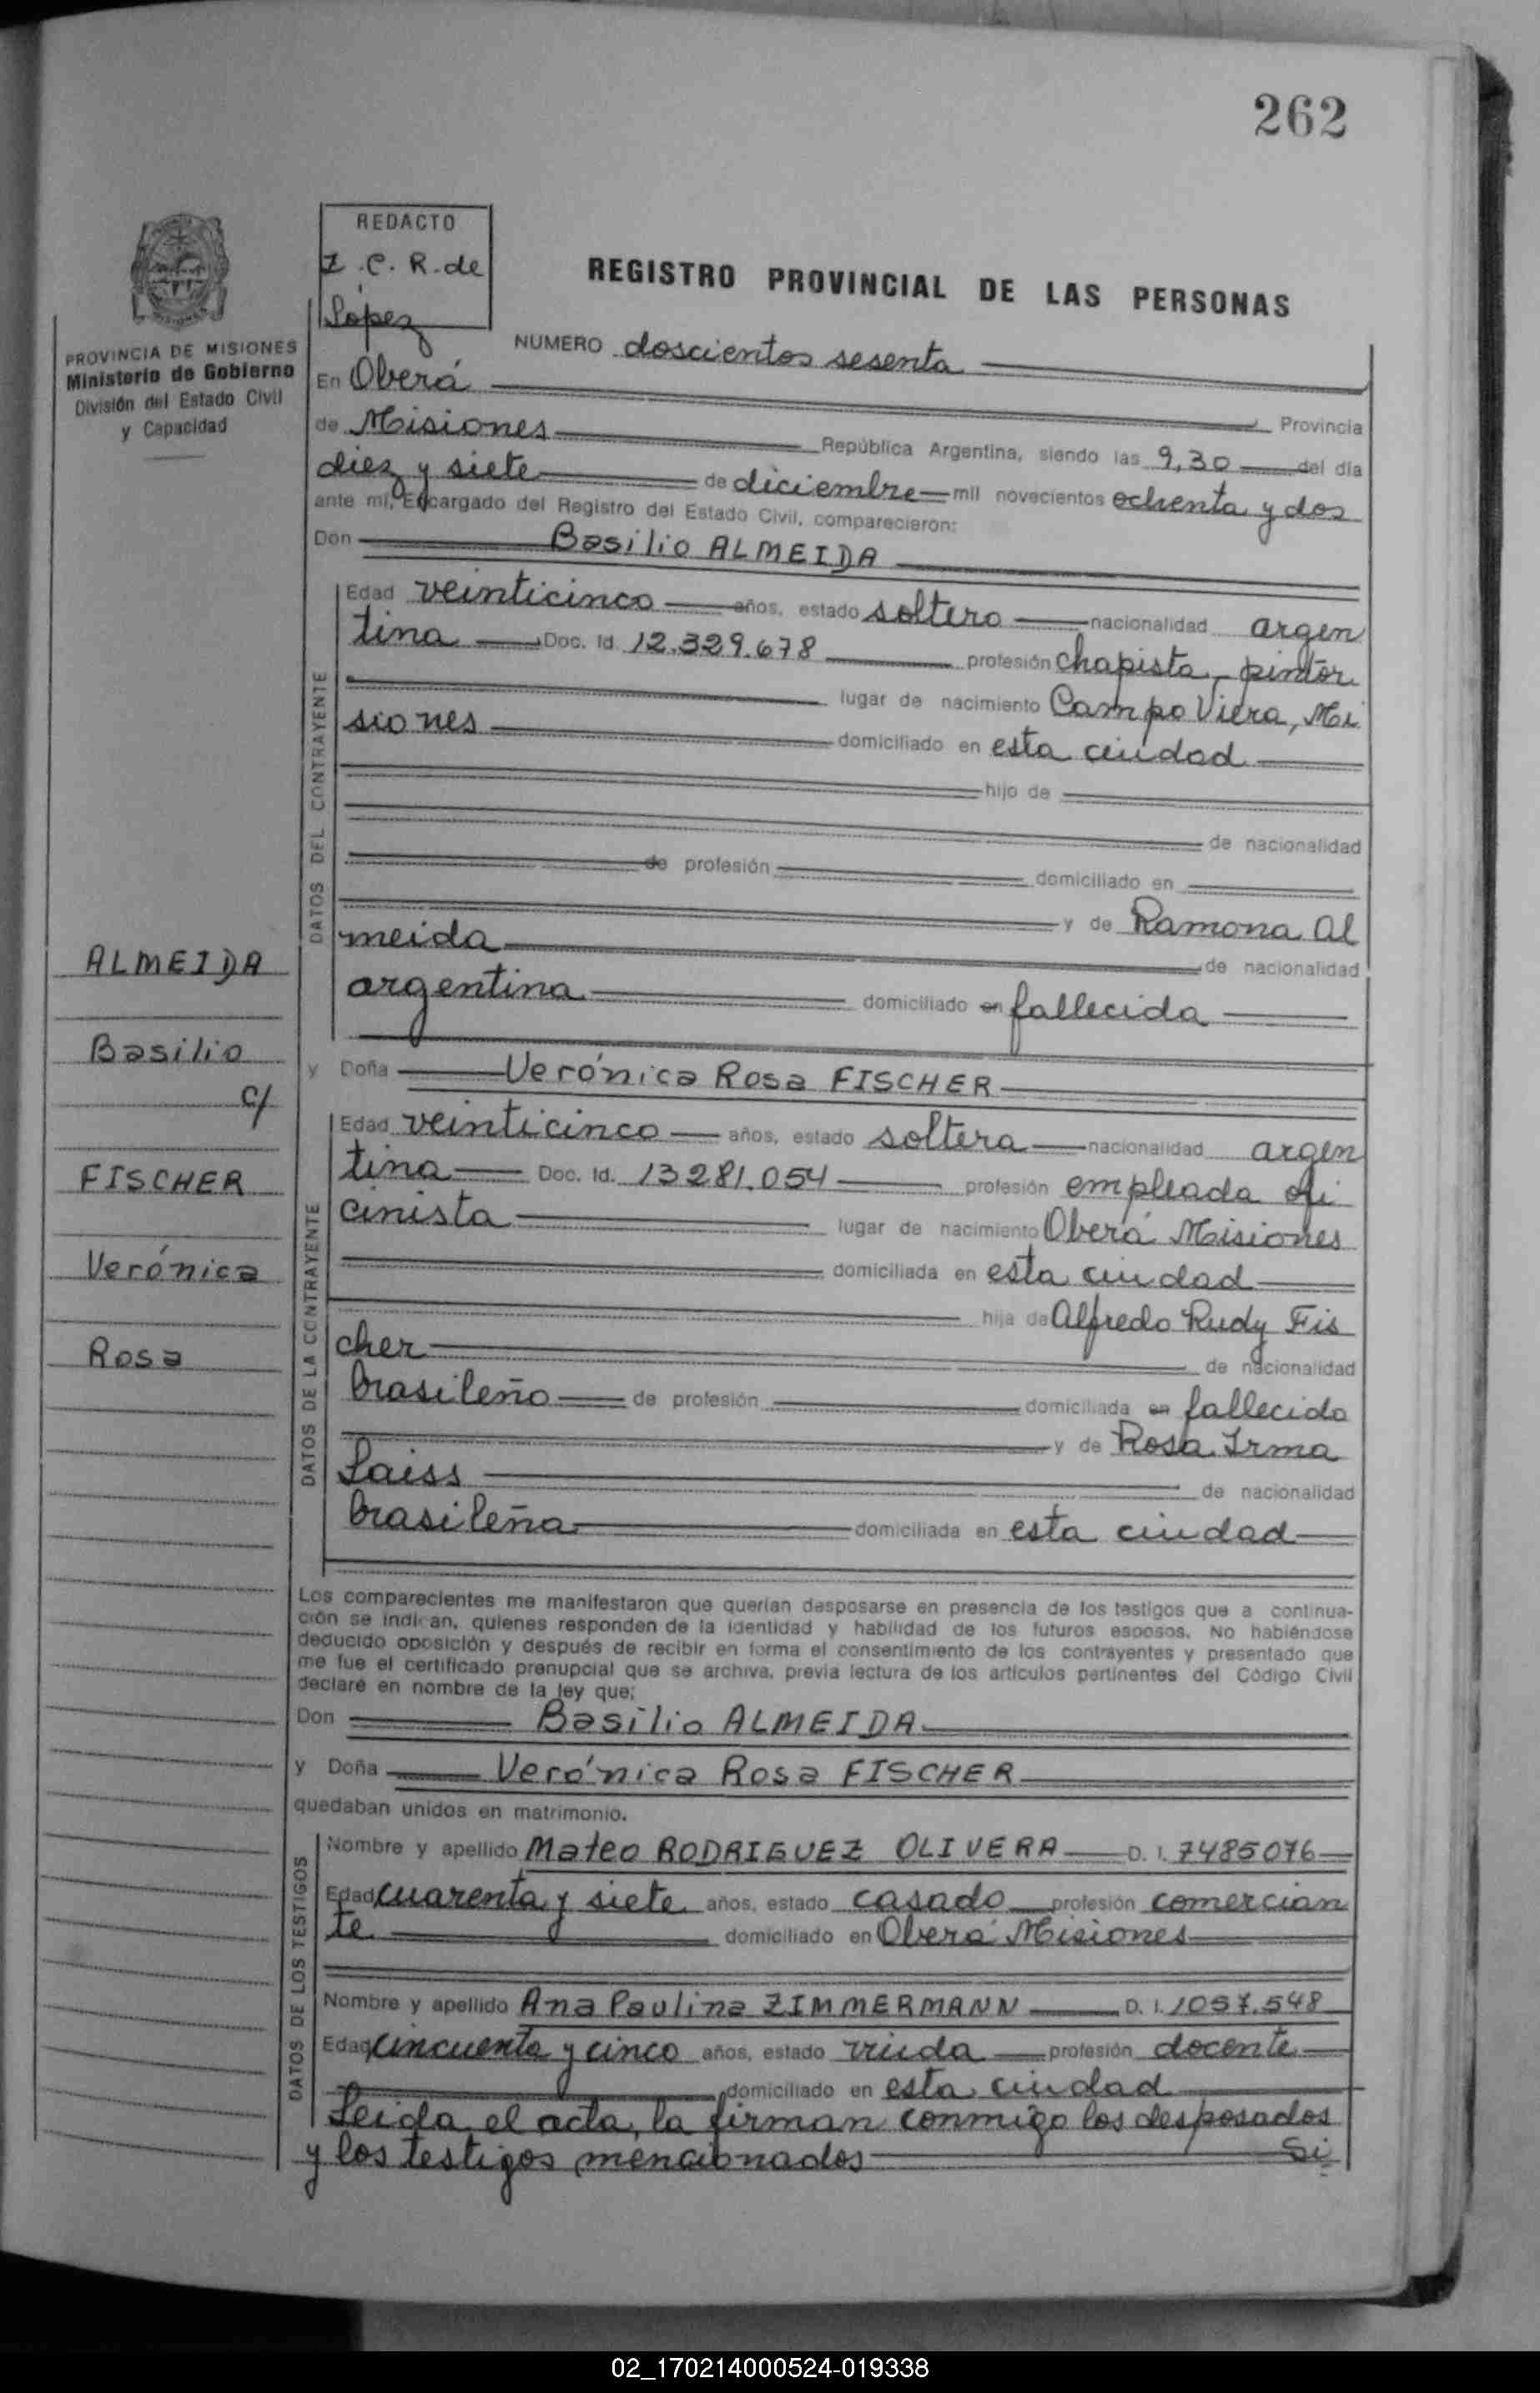 262
REDACTO
Z.C.R. de
López
REGISTRO PROVINCIAL DE LAS PERSONAS
PROVINCIA DE MISIONES
Ministerio de Gobierno
División del Estado Civil
y Capacidad
NUMERO doscientos sesenta
En Oberá Provincia
de Misiones República Argentina, siendo las 9,30 del día
diez y siete de diciembre mil novecientos ochenta y dos
ante mí, Encargado del Registro del Estado Civil, comparecieron:
Don Basilio ALMEIDA
DATOS DEL CONTRAYENTE
Edad veinticinco años, estado soltero nacionalidad argen
tina Doc. Id. 12.329.678 profesión chapista, pintor
lugar de nacimiento Campo Viera, Mi
siones domiciliado en esta ciudad
hijo de
de nacionalidad
de profesión domiciliado en
y de Ramona Al
meida de nacionalidad
argentina domiciliado en fallecida
y Doña Verónica Rosa FISCHER
DATOS DE LA CONTRAYENTE
Edad veinticinco años, estado soltera nacionalidad argen
tina Doc. Id. 13281.054 profesión empleada ofi
cinista lugar de nacimiento Oberá Misiones
domiciliada en esta ciudad
hija de Alfredo Rudy Fis
cher de nacionalidad
brasileño de profesión domiciliada en fallecido
y de Rosa Irma
Laiss de nacionalidad
brasileña domiciliada en esta ciudad
ALMEIDA
Basilio
c/
FISCHER
Verónica
Rosa
Los comparecientes me manifestaron que querían desposarse en presencia de los testigos que a continua-
ción se indican, quienes responden de la identidad y habilidad de los futuros esposos. No habiéndose
deducido oposición y después de recibir en forma el consentimiento de los contrayentes y presentado que
me fue el certificado prenupcial que se archiva, previa lectura de los artículos pertinentes del Código Civil
declaré en nombre de la ley que:
Don Basilio ALMEIDA
y Doña Verónica Rosa FISCHER
quedaban unidos en matrimonio.
DATOS DE LOS TESTIGOS
Nombre y apellido Mateo RODRIGUEZ OLIVERA D. I. 7485076
Edad cuarenta y siete años, estado casado profesión comercian
te domiciliado en Oberá Misiones
Nombre y apellido Ana Paulina ZIMMERMANN D. I. 1057.548
Edad cincuenta y cinco años, estado viuda profesión docente
domiciliado en esta ciudad
Leida el acta, la firman conmigo los desposados
y los testigos mencionados Si
02_170214000524-019338